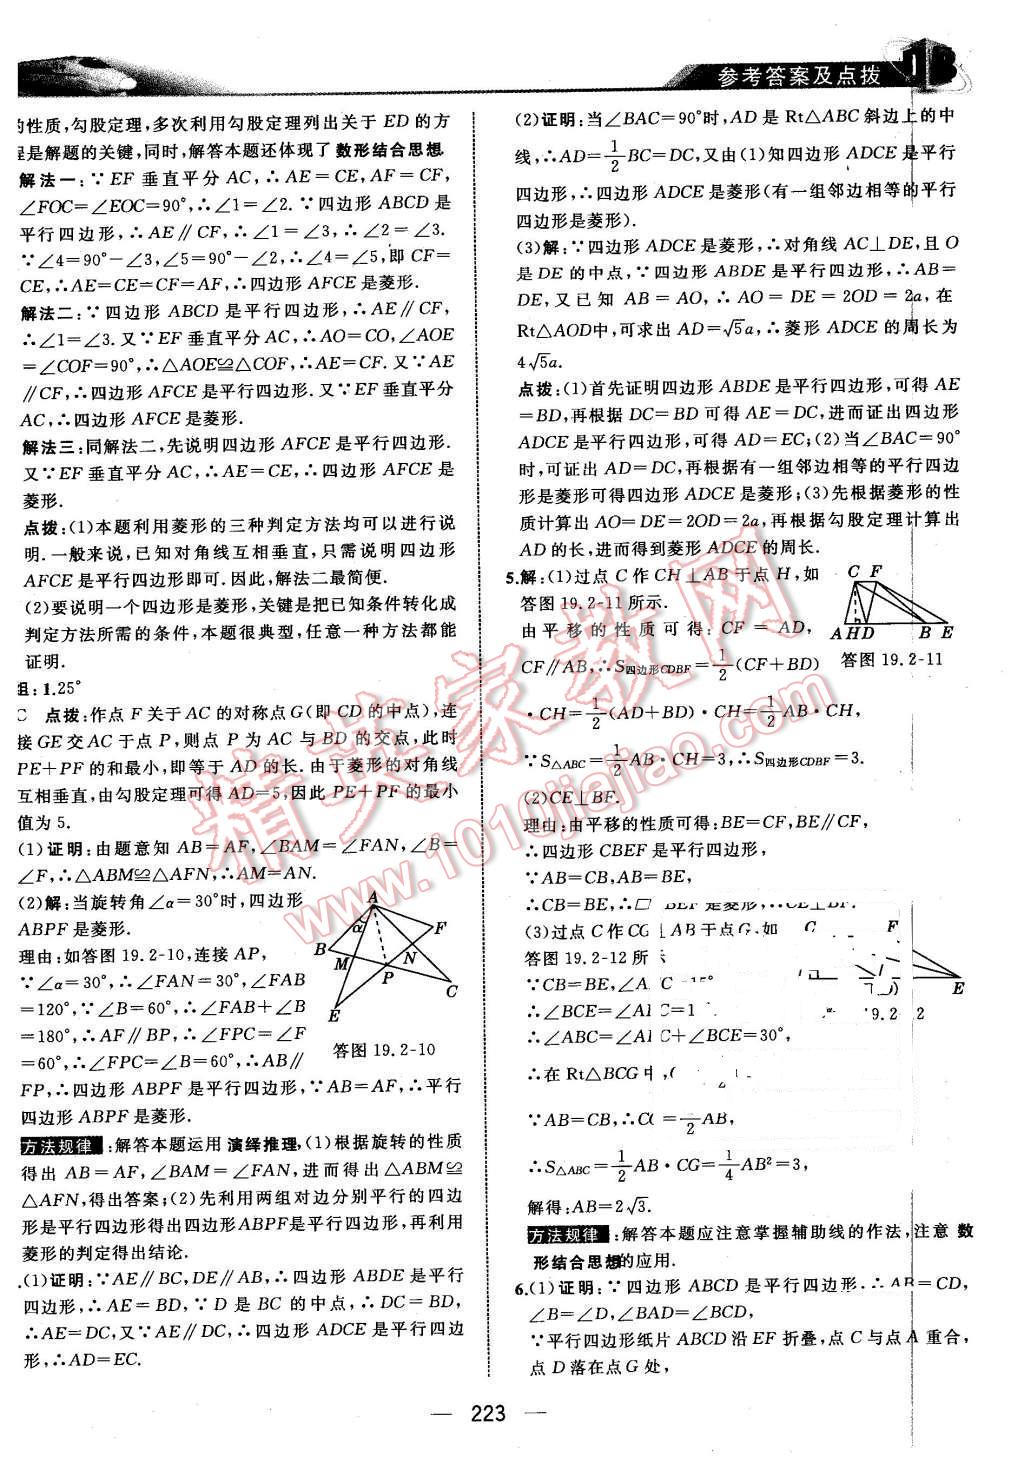 参考答案及点拨
的性质,勾股定理,多次利用勾股定理列出关于 ED 的方
程是解题的关键,同时,解答本题还体现了 数形结合思想.
解法一:∵EF 垂直平分 AC,∴AE=CE,AF=CF,
∠FOC=∠EOC=90°,∴∠1=∠2.∵四边形 ABCD 是
平行四边形,∴AE∥CF,∴∠1=∠3,∴∠2=∠3.
∵∠4=90°-∠3,∠5=90°-∠2,∴∠4=∠5,即 CF=
CE,∴AE=CE=CF=AF,∴四边形 AFCE 是菱形.
解法二:∵四边形 ABCD 是平行四边形,∴AE∥CF,
∴∠1=∠3.又∵EF 垂直平分 AC,∴AO=CO,∠AOE
=∠COF=90°,∴△AOE≌△COF,∴AE=CF.又∵AE
∥CF,∴四边形 AFCE 是平行四边形.又∵EF 垂直平分
AC,∴四边形 AFCE 是菱形.
解法三:同解法二,先说明四边形 AFCE 是平行四边形.
又∵EF 垂直平分 AC,∴AE=CE,∴四边形 AFCE 是
菱形.
点拨:(1)本题利用菱形的三种判定方法均可以进行说
明.一般来说,已知对角线互相垂直,只需说明四边形
AFCE 是平行四边形即可.因此,解法二最简便.
(2)要说明一个四边形是菱形,关键是把已知条件转化成
判定方法所需的条件,本题很典型,任意一种方法都能
证明.
组:1.25°
C 点拨:作点 F 关于 AC 的对称点 G(即 CD 的中点),连
接 GE 交 AC 于点 P,则点 P 为 AC 与 BD 的交点,此时
PE+PF 的和最小,即等于 AD 的长.由于菱形的对角线
互相垂直,由勾股定理可得 AD=5,因此 PE+PF 的最小
值为 5.
(1)证明:由题意知 AB=AF,∠BAM=∠FAN,∠B=
∠F,∴△ABM≌△AFN,∴AM=AN.
(2)解:当旋转角∠α=30°时,四边形
ABPF 是菱形.
理由:如答图 19.2-10,连接 AP,
∵∠α=30°,∴∠FAN=30°,∠FAB
=120°,∵∠B=60°,∴∠FAB+∠B
=180°,∴AF∥BP,∴∠FPC=∠F
=60°,∴∠FPC=∠B=60°,∴AB∥
FP,∴四边形 ABPF 是平行四边形,∵AB=AF,∴平行
四边形 ABPF 是菱形.
A
α
F
B
M
N
P
C
E
答图 19.2-10
方法规律:解答本题运用 演绎推理,(1)根据旋转的性质
得出 AB=AF,∠BAM=∠FAN,进而得出△ABM≌
△AFN,得出答案;(2)先利用两组对边分别平行的四边
形是平行四边形得出四边形ABPF是平行四边形,再利用
菱形的判定得出结论.
.(1)证明:∵AE∥BC,DE∥AB,∴四边形 ABDE 是平行
四边形,∴AE=BD,∵D 是 BC 的中点,∴DC=BD,
∴AE=DC,又∵AE∥DC,∴四边形 ADCE 是平行四边
形,∴AD=EC.
(2)证明:当∠BAC=90°时,AD 是 Rt△ABC 斜边上的中
线,∴AD=1/2BC=DC,又由(1)知四边形 ADCE 是平行
四边形,∴四边形 ADCE 是菱形(有一组邻边相等的平行
四边形是菱形).
(3)解:∵四边形 ADCE 是菱形,∴对角线 AC⊥DE,且 O
是 DE 的中点,∵四边形 ABDE 是平行四边形,∴AB=
DE,又已知 AB=AO,∴AO=DE=2OD=2a,在
Rt△AOD中,可求出 AD=√5a,∴菱形 ADCE 的周长为
4√5a.
点拨:(1)首先证明四边形 ABDE 是平行四边形,可得 AE
=BD,再根据 DC=BD 可得 AE=DC,进而证出四边形
ADCE 是平行四边形,可得 AD=EC;(2)当∠BAC=90°
时,可证出 AD=DC,再根据有一组邻边相等的平行四边
形是菱形可得四边形 ADCE 是菱形;(3)先根据菱形的性
质计算出 AO=DE=2OD=2a,再根据勾股定理计算出
AD 的长,进而得到菱形 ADCE 的周长.
5.解:(1)过点 C 作 CH⊥AB 于点 H,如
答图 19.2-11 所示.
由平移的性质可得:CF=AD,
CF∥AB,∴S四边形CDBF=1/2(CF+BD)
·CH=1/2(AD+BD)·CH=1/2AB·CH,
∵S△ABC=1/2AB·CH=3,∴S四边形CDBF=3.
C F
A H D B E
答图 19.2-11
(2)CE⊥BF.
理由:由平移的性质可得:BE=CF,BE∥CF,
∴四边形 CBEF 是平行四边形,
∵AB=CB,AB=BE,
∴CB=BE,∴□ BEF 是菱形,∴CE⊥BF.
(3)过点 C 作 CG⊥AB 于点 G,如
答图 19.2-12 所
∵CB=BE,∠A C 15°
∴∠BCE=∠A C=1
∴∠ABC=∠A C+∠BCE=30°,
∴在 Rt△BCG 中,
∵AB=CB,∴C =1/2AB,
∴S△ABC=1/2AB·CG=1/4AB²=3,
解得:AB=2√3.
C F
E
19.2 2
方法规律:解答本题应注意掌握辅助线的作法,注意 数
形结合思想的应用.
6.(1)证明:∵四边形 ABCD 是平行四边形.∴AB=CD,
∠B=∠D,∠BAD=∠BCD,
∵平行四边形纸片 ABCD 沿 EF 折叠,点 C 与点 A 重合,
点 D 落在点 G 处,
精英家教网
www.1010jiajiao.com
— 223 —